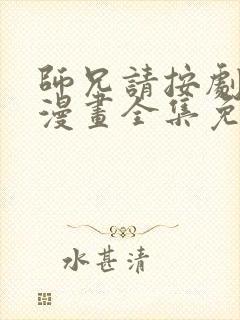 師兄請按劇
漫畫全集免
水甚清